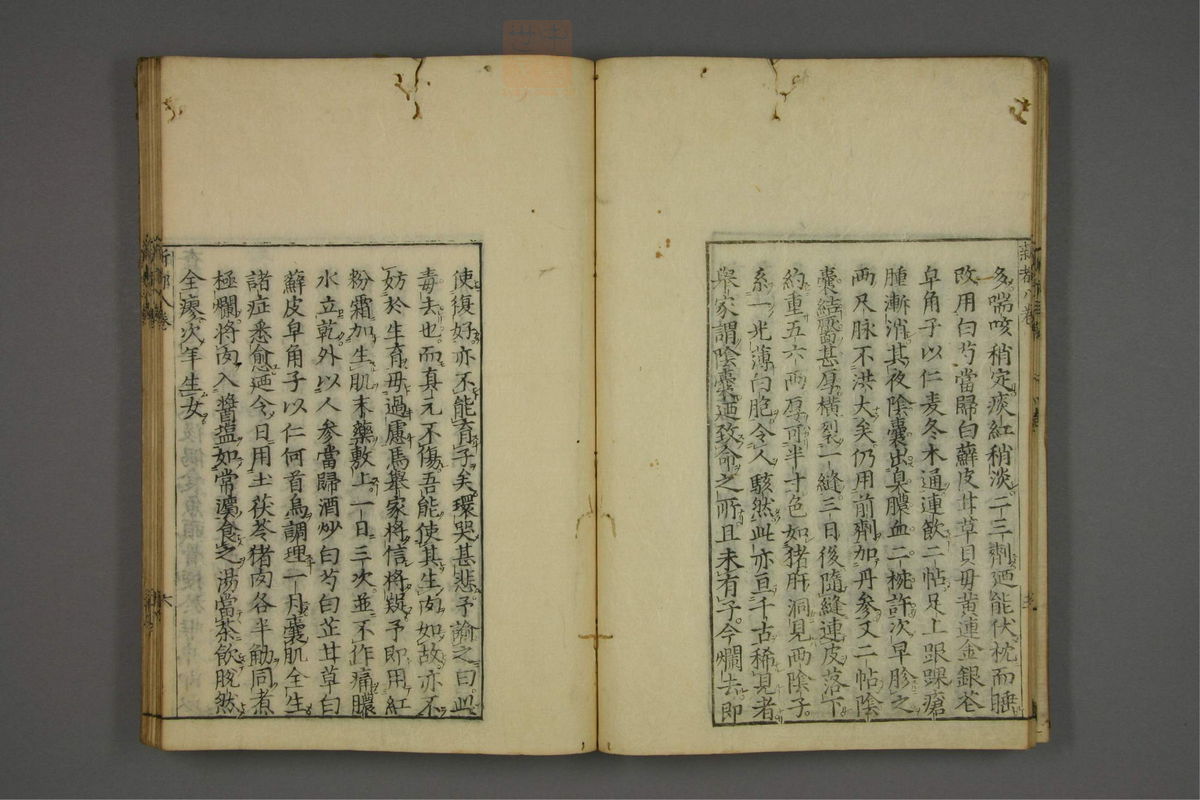 多喘咳稍定痰紅稍淡二三劑廼能伏枕而睡
改用白芍當歸白蘚皮甘草貝毋黃連金銀花
皁角子以仁麦冬木通連飲二帖足上踝臁瘡
腫漸消其夜陰囊出臭膿血二椀許次早胗之
两尺脉不洪大矣仍用前劑加丹參又二帖陰
囊結靨甚厚橫裂一縫三日後隨縫連皮落下
約重五六两厚可半寸色如猪肝洞見两陰子
系一光薄白胞令人駭然此亦亘千古稀見者
舉家謂陰囊廼致命之所且未有子今爛去即
使復好亦不能育子矣環哭甚悲予諭之曰此
毒去也而真元不傷吾能使其生肉如故亦不
妨於生育毋過慮焉舉家將信將疑予即用紅
粉霜加生肌末藥敷上一日三次並不作痛膿
水立乾外以人參當歸酒炒白芍白芷甘草白
蘚皮皁角子以仁何首烏調理一月囊肌全生
諸症悉愈廼令日用土茯苓猪肉各半觔同煮
極爛將肉入醬塩如常濃食之湯當茶飲脫然
全瘳次年生女